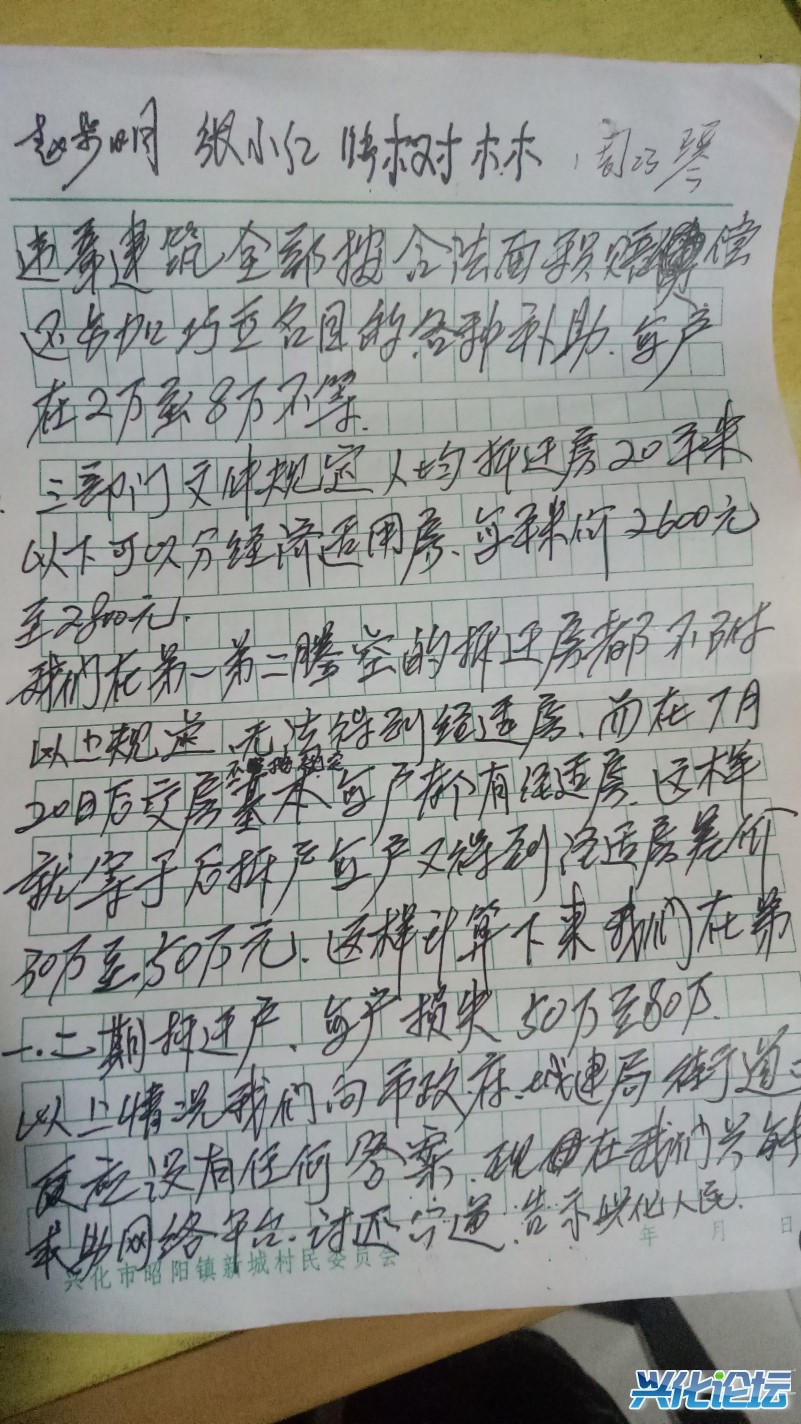 赵步明 张小仁 树林 周巧琴
违章建筑全部按合法面积赔偿
还另加巧立名目的各种补助、每户
在2万至8万不等.
三部门文件规定人均拆迁房20平米
以下可以分经济适用房、每平米价2600元
至2800元.
我们在第一第二腾空的拆迁房都不附
以上规定 无法得到经适房、而在7月
不按规定
20日后交房基本每户都有经适房、这样
就等于后拆户每户又得到经适房差价
30万至50万元、这样计算下来我们在第
一.二期拆迁户、每户损失50万至80万.
以上情况我们向市政府、城建局 街道
反应没有任何答案、现在我们只能
求助网络平台、讨还公道、告示兴化人民.
年 月 日
兴化市昭阳镇新城村民委员会
兴化论坛